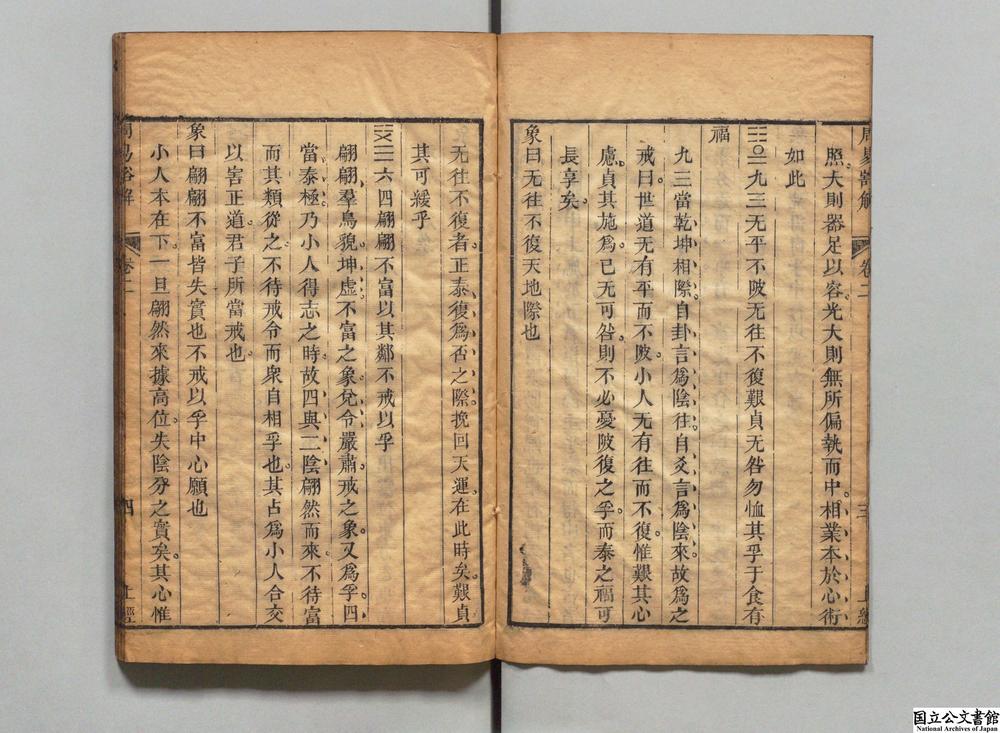 照大則器足以容光大則無所偏執而中相業本於心術
如此
九三无平不陂无往不復艱貞无咎勿恤其孚于食有
福
九三當乾坤相際自卦言為陰往自爻言為陰來故為之
戒曰世道无有平而不陂小人无有往而不復惟艱其心
慮貞其施為已无可咎則不必憂陂復之孚而泰之福可
長享矣
象曰无往不復天地際也
无往不復者正泰復為否之際挽回天運在此時矣艱貞
其可緩乎
六四翩翩不富以其鄰不戒以孚
翩翩羣鳥貌坤虛不富之象兌令嚴肅戒之象又為孚四
當泰極乃小人得志之時故四與二陰翩然而來不待富
而其類從之不待戒令而衆自相孚也其占為小人合交
以害正道君子所當戒也
象曰翩翩不富皆失實也不戒以孚中心願也
小人本在下一旦翩然來據高位失陰分之實矣其心惟
卷二
三
上經
卷二
四
上經
国立公文書館
National Archives of Japan